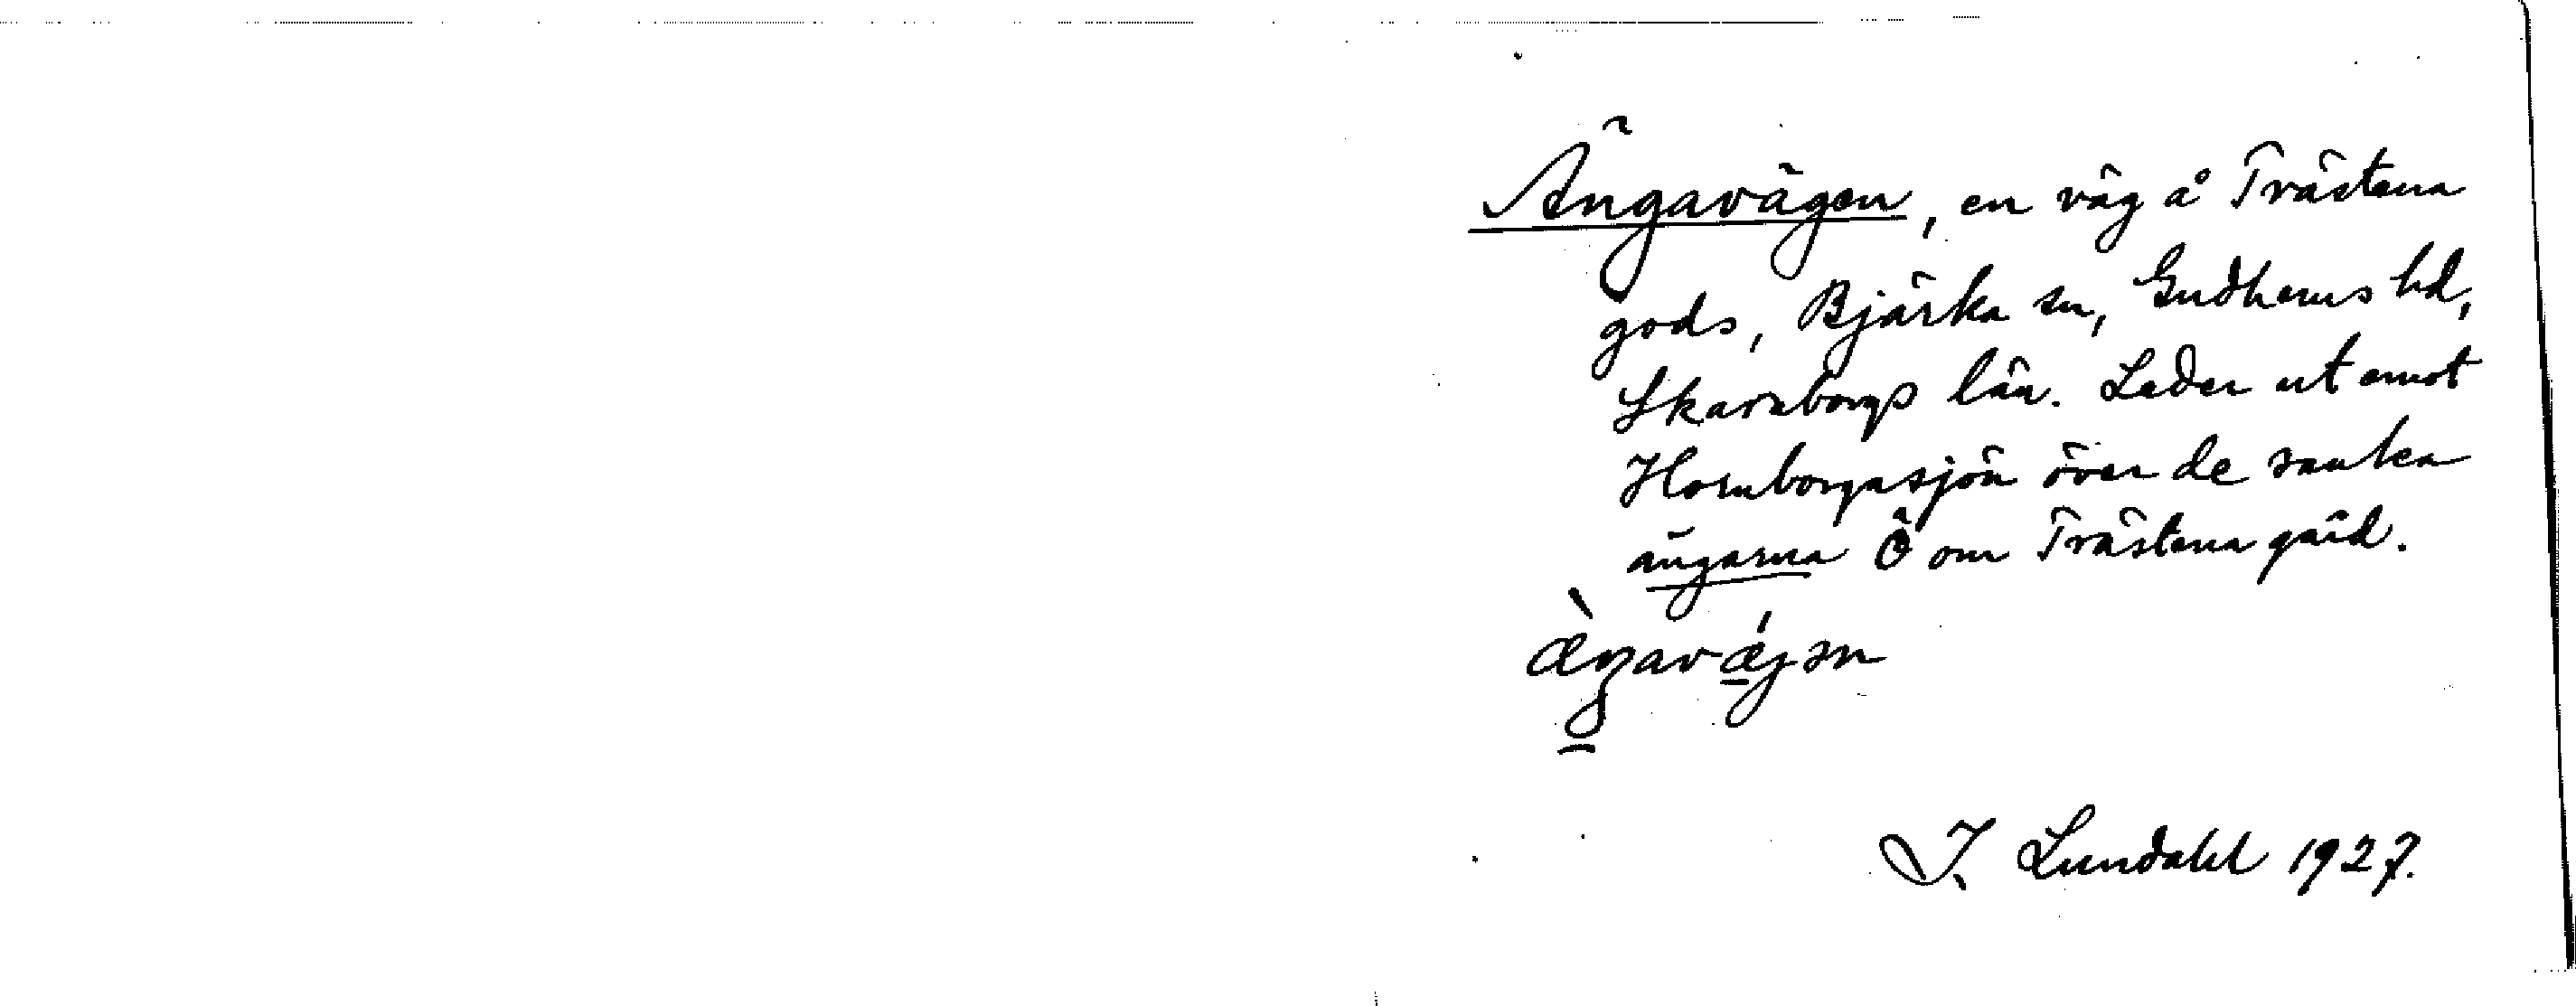 Ängavägen, en väg å Trästena
gods, Bjärka sn, Gudhems hd,
Skaraborgs län. Leder ut emot
Hornborgasjön över de sanka
ängarna Ö om Trästena gård.
æ̀ŋavǽjən
I. Lundahl 1927.